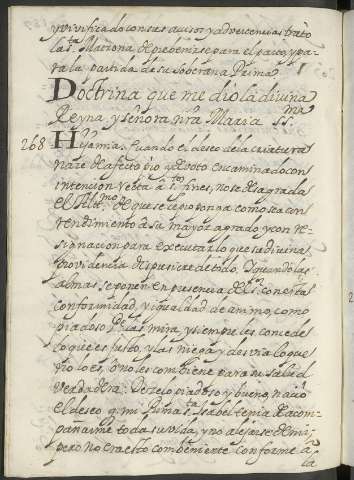 y vivificado con sus avisos y advertencias trató
la S.ta Matrona de prebenirse para el parto, y pa-
ra la partida de su Soberana Prima.
Doctrina que me dio la divina
Reyna, y señora nra Maria SS.ma
268 Hija mia. Cuando el deseo de la criatura
naze de afecto pio y devoto encaminado con
intencion recta à s.tos fines, no se desagrada
el Altis.mo de que se le proponga como sea con
rendimiento à su mayor agrado, y con re-
signacion para executar lo que su divina
Providencia dispusiere de todo. Y quando las
almas se ponen en presencia del S.r con esta
conformidad, y igualdad de animo, como
piadoso P.e las mira, y siempre les concede
lo que es justo, y las niega y desvia lo que
no lo es, ò no les combiene para su salud
verdadera. De zelo piadoso y bueno, nacio
el deseo q. mi Prima S.ta Isabel tenia de acom-
pañarme toda su vida, y no alejarse de mi,
pero no era esto combeniente conforme à
la